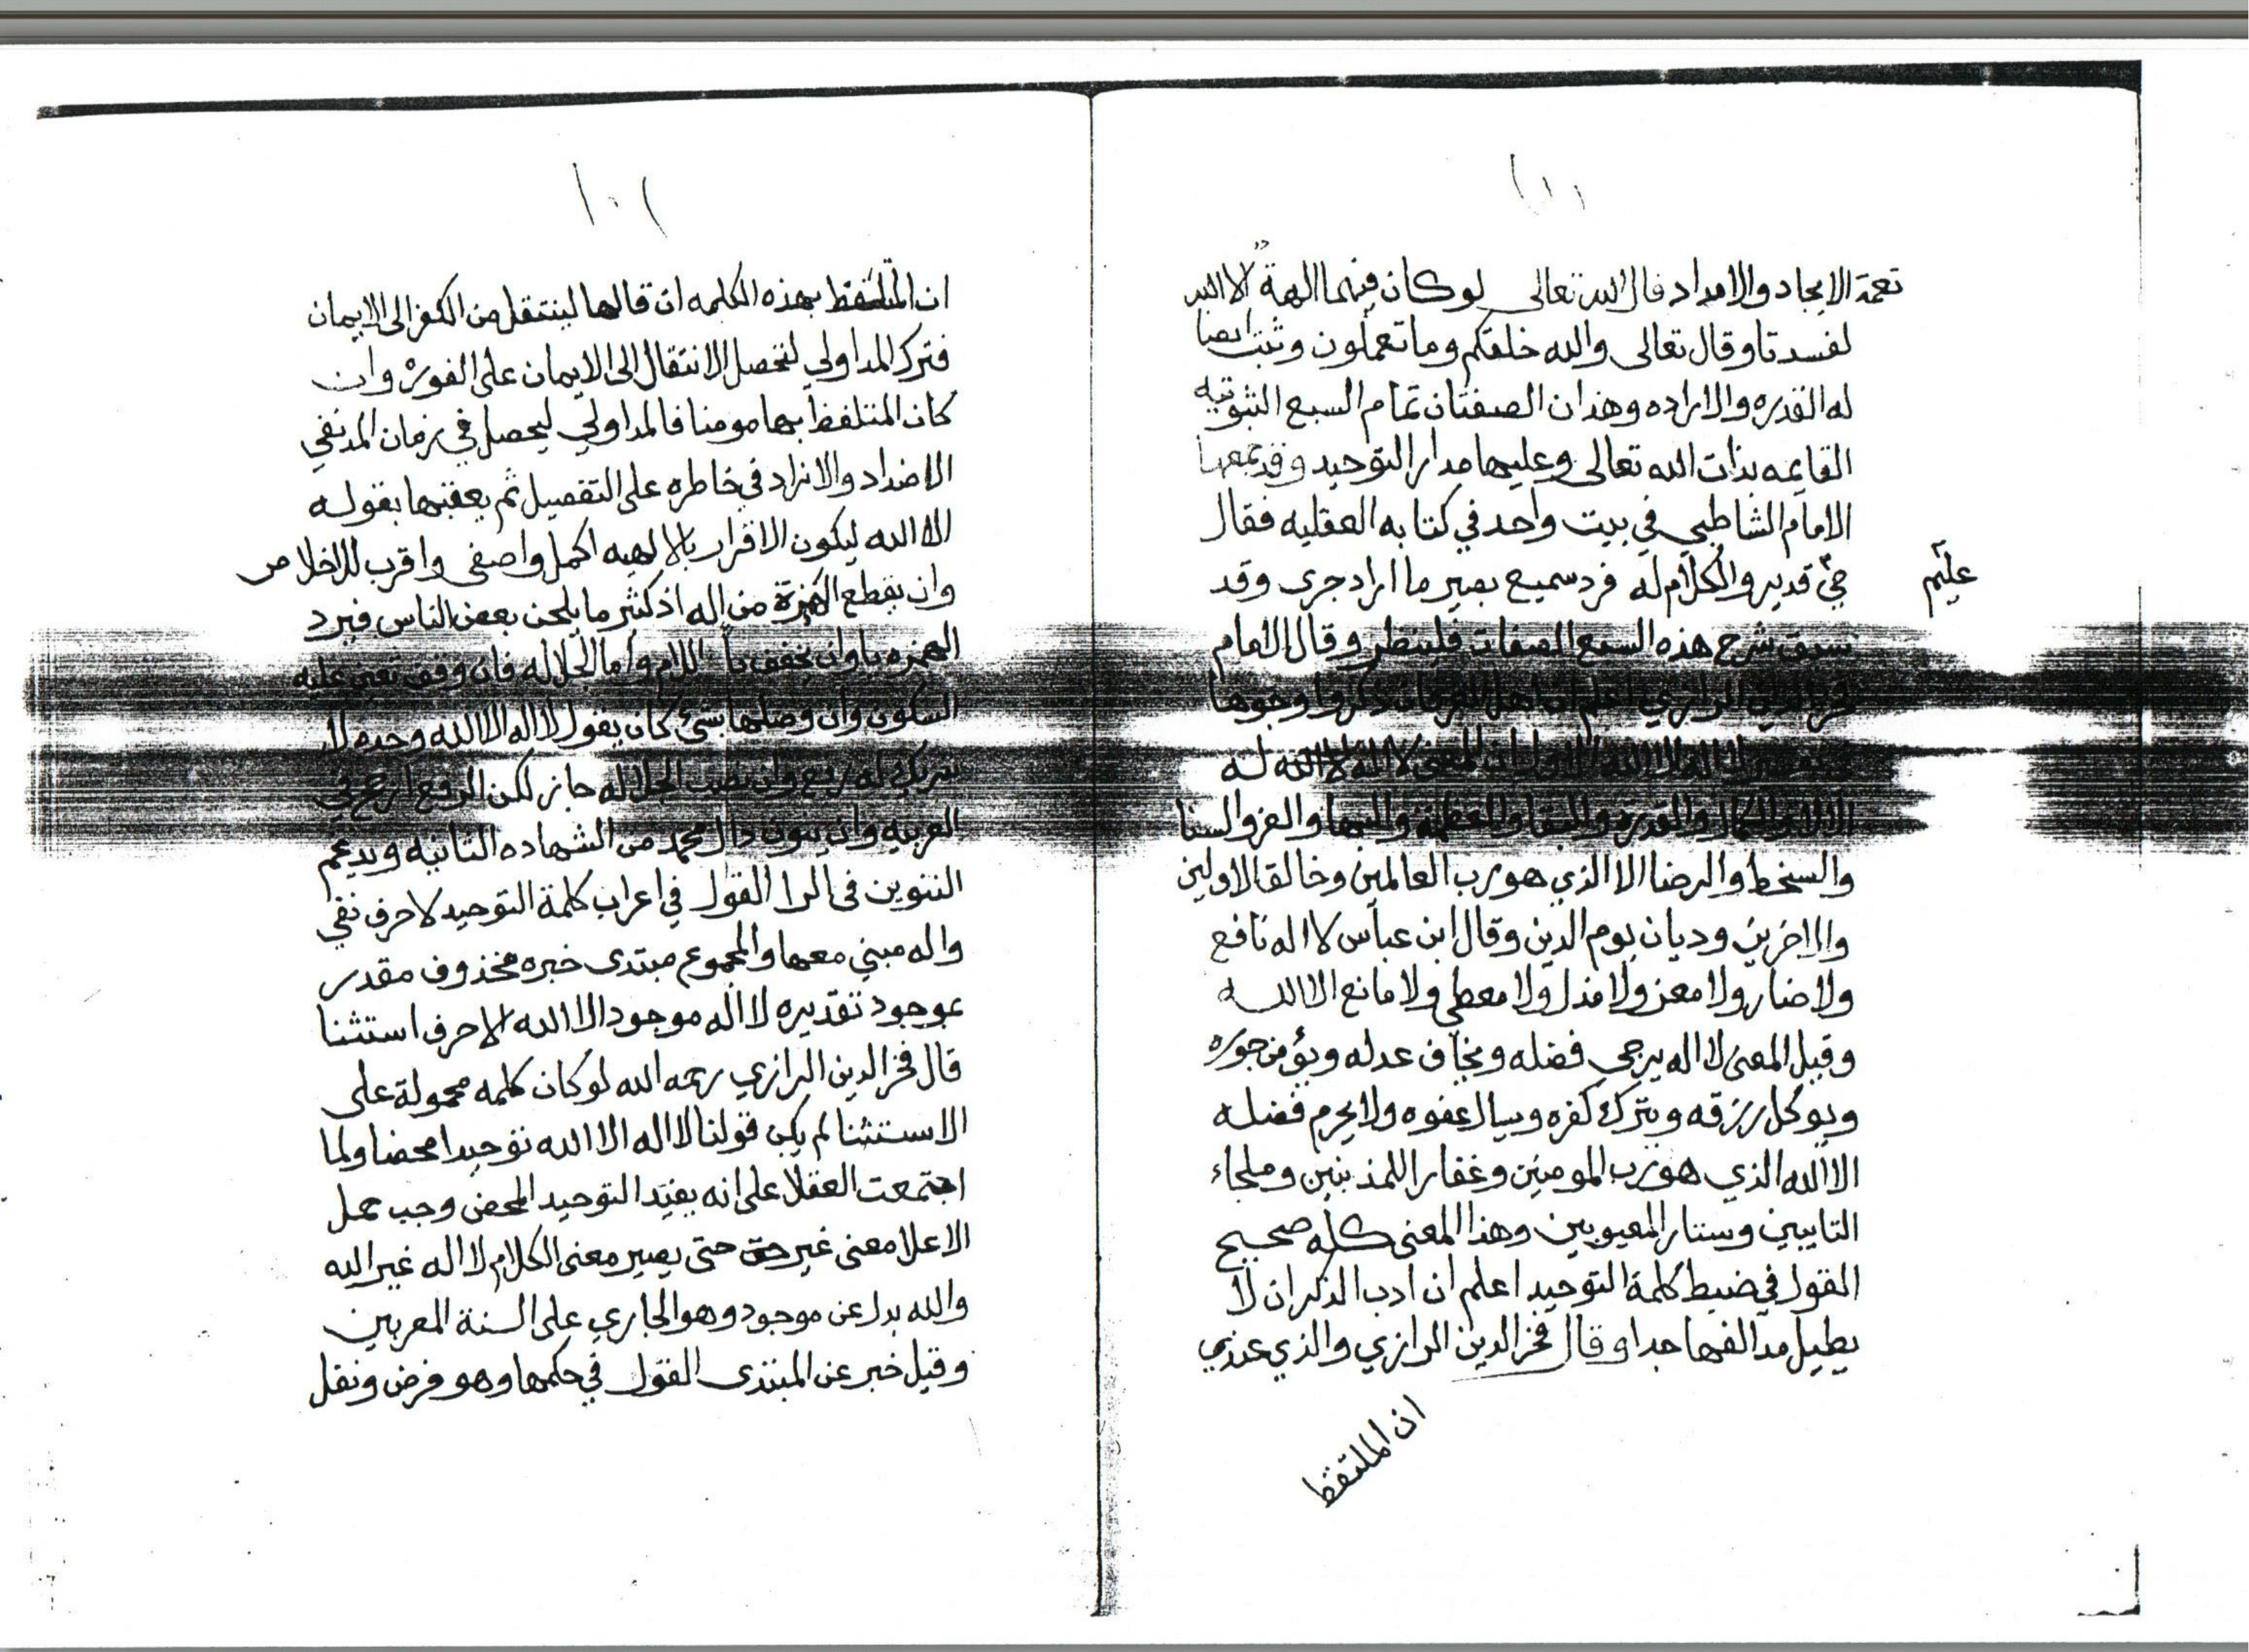 نعمة الايجاد والامداد قال الله تعالى لو كان فيهما الهة الا الله
لفسدتا وقال تعالى والله خلقكم وما تعملون وثبت ايضا
له القدره والاراده وهذان الصفتان تمام السبع الثبوتيه
القايمه بذات الله تعالى وعليها مدار التوحيد وقد جمعها
الامام الشاطبي في بيت واحد في كتابه العقليه فقال
حيّ قدير والكلام له فرد سميع بصير ما اراد جرى وقد
عليم
سبق شرح هذه السبع الصفات فلينظر وقال الامام
فخر الدين الرازي اعلم ان اهل العرفان ذكروا وجوها
لا اله الا الله الاول ان المعنى لا اله الا الله له
والكمال والقدرة والبقا والعظمة والبها والعز والسنا
والسخط والرضا الا الذي هو رب العالمين وخالق الاولين
والاخرين وديان يوم الدين وقال ابن عباس لا اله نافع
ولا ضار ولا معز ولا مذل ولا معطي ولا مانع الا الله
وقيل المعنى لا اله يرجى فضله ويخاف عدله ويؤمن جوره
ويوكل رزقه ويترك كفره ويسال عفوه ولا يحرم فضله
الا الله الذي هو رب المومنين وغفار للمذنبين وملجاء
التايبين وستار المعيوبين وهذا المعنى كله صحيح
القول في ضبط كلمة التوحيد اعلم ان ادب الذكر ان لا
يطيل مد الفها جدا وقال فخر الدين الرازي والذي عندي
ان الملتفظ
ان المتلفظ بهذه الكلمه ان قالها لينتقل من الكفر الى الايمان
فترك المد اولي لتحصل الانتقال الى الايمان على الفور وان
كان المتلفظ بها مومنا فالمد اولي ليحصل في زمان المد نفي
الاضداد والانداد في خاطره على التفصيل ثم يعقبها بقوله
الا الله ليكون الاقرار بالالهيه اكمل واصفى واقرب للاخلاص
وان يقطع الهمزة من اله اذ كثير ما يلحن بعض الناس فيرد
الهمزه يا وان يخفف اللام واما الجلاله فان وقف تعين عليه
السكون وان وصلها بشئ كان يقول لا اله الا الله وحده لا
شريك له رفع وان نصب الجلاله جاز لكن الرفع ارجح في
العربيه وان ينون دال محمد من الشهاده الثانيه ويدغم
التنوين في الرا القول في اعراب كلمة التوحيد لا حرف نفي
واله مبني معها والمجموع مبتدى خبره محذوف مقدر
بموجود تقديره لا اله موجود الا الله الا حرف استثنا
قال فخر الدين الرازي رحمه الله لو كان كلمه محمولة على
الاستثنا لم يكن قولنا لا اله الا الله توحيدا محضا ولما
اجتمعت العقلا على انه يفيد التوحيد المحض وجب حمل
الا على معنى غير حتى يصير معنى الكلام لا اله غير الله
والله بدل عن موجود وهو الجاري على السنة المعربين
وقيل خبر عن المبتدى القول في حكمها وهو فرض ونفل